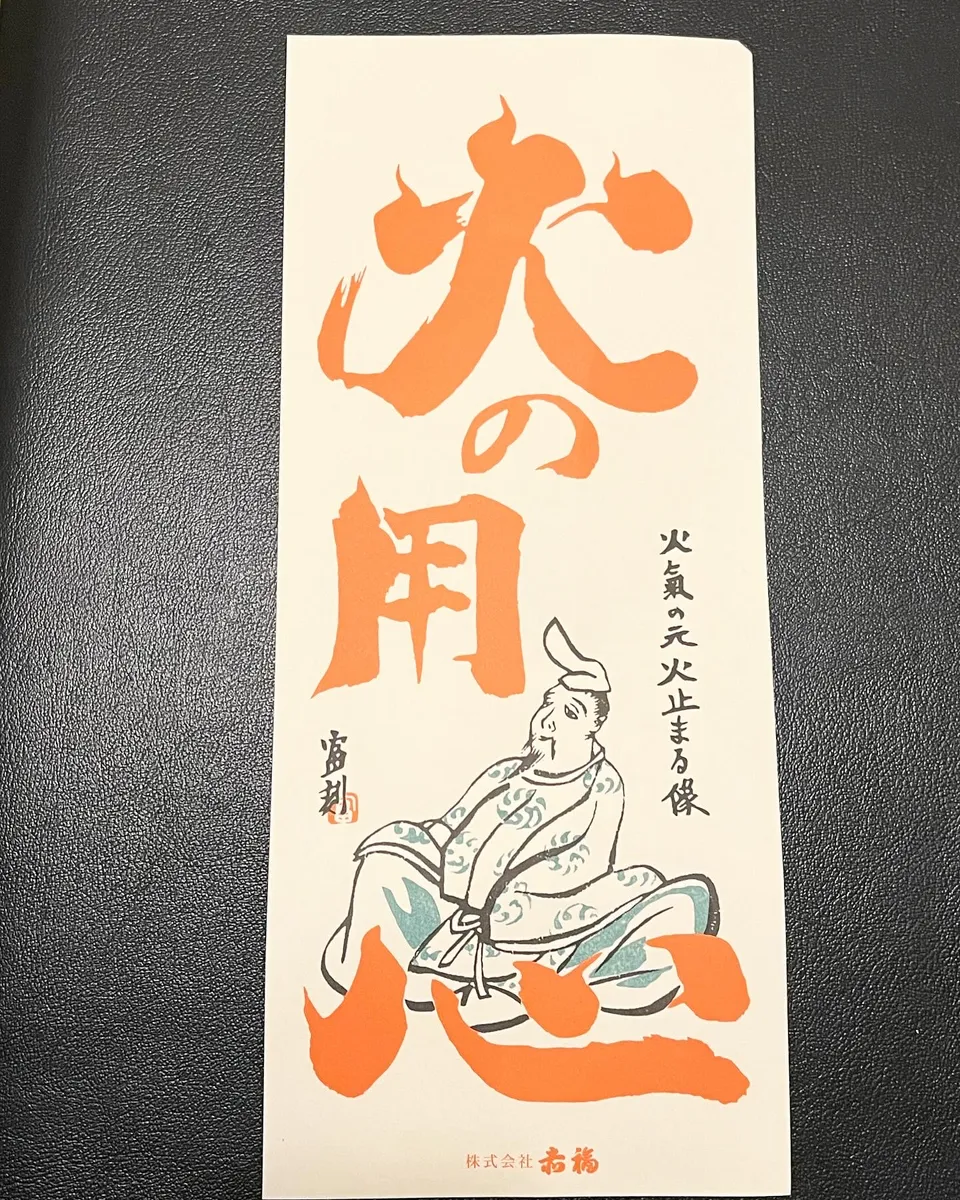 火の用心
火氣の元火止まる像
富刻
株式会社 赤福